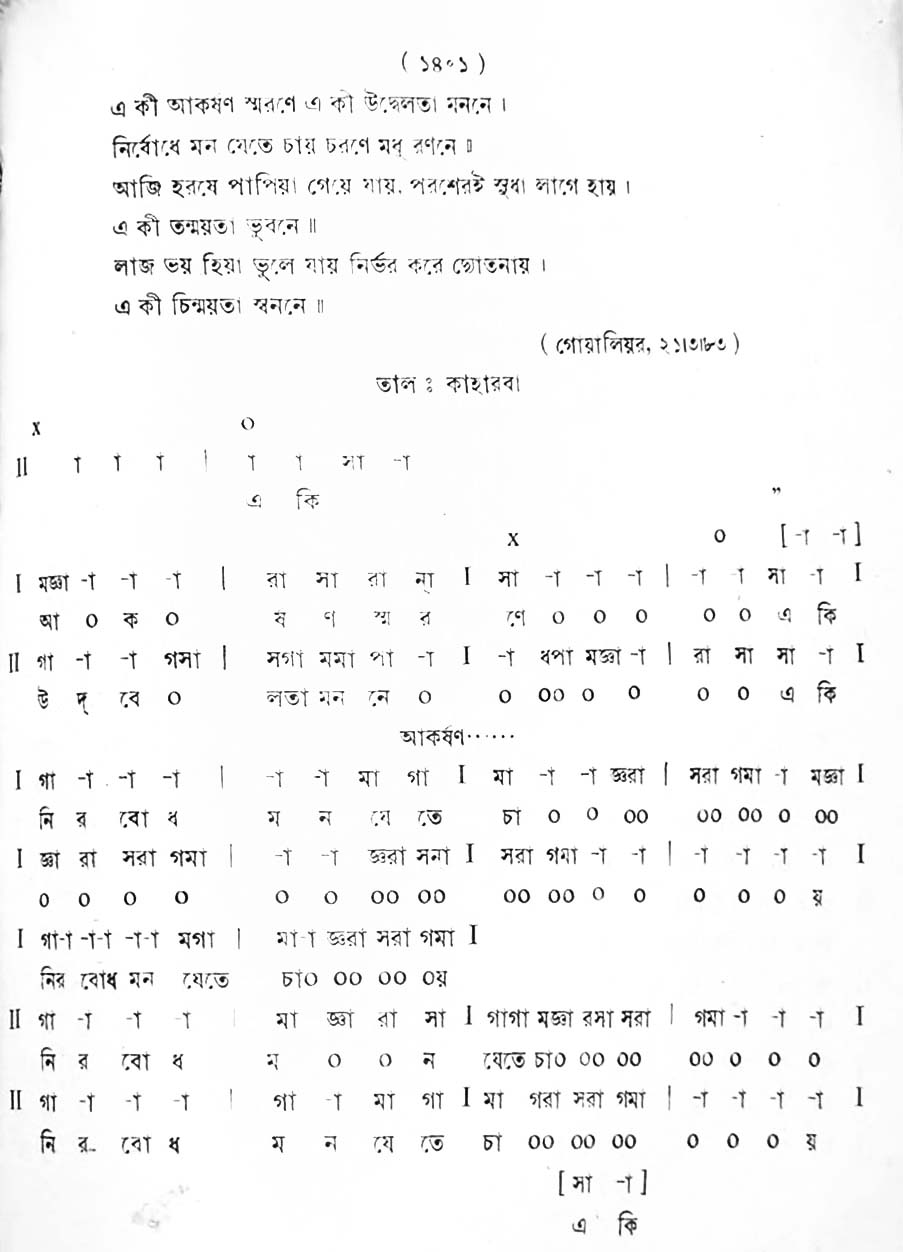 ( ১৪০১ )
এ কী আকর্ষণ স্মরণে এ কী উদ্বেলতা মননে ।
নির্বোধে মন যেতে চায় চরণে মধু রণনে ॥
আজি হরষে পাপিয়া গেয়ে যায়, পরশেরই সুধা লাগে হায় ।
এ কী তন্ময়তা ভুবনে ॥
লাজ ভয় হিয়া ভুলে যায় নির্ভর করে দ্যোতনায় ।
এ কী চিন্ময়তা স্বননে ॥
( গোয়ালিয়র, ২১।৩।৮৩ )
তাল ঃ কাহারবা
x o
II া া া | া া সা -া
এ কি
”
x o [ -া -া ]
I মজ্ঞা -া -া -া | রা সা রা ন্া I সা -া -া -া | -া -া সা -া I
আ ০ ক ০ ষ ণ স্ম র ণে ০ ০ ০ ০ ০ এ কি
II গা -া -া গসা | সগা মমা পা -া I -া ধপা মজ্ঞা -া | রা সা সা -া I
উ দ্ বে ০ লতা মন নে ০ ০ ০০ ০ ০ ০ ০ এ কি
আকর্ষণ······
I গা -া -া -া | -া -া মা গা I মা -া -া জ্ঞরা | সরা গমা -া মজ্ঞা I
নি র বো ধ ম ন যে তে চা ০ ০ ০০ ০০ ০০ ০ ০০
I জ্ঞা রা সরা গমা | -া -া জ্ঞরা সনা I সরা গমা -া -া | -া -া -া -া I
০ ০ ০ ০ ০ ০ ০০ ০০ ০০ ০০ ০ ০ ০ ০ ০ য়
I গা-া -া-া -া-া মগা | মা-া জ্ঞরা সরা গমা I
নির বোধ মন যেতে চা০ ০০ ০০ ০য়
II গা -া -া -া | মা জ্ঞা রা সা I গাগা মজ্ঞা রসা সরা | গমা -া -া -া I
নি র বো ধ ম ০ ০ ন যেতে চা০ ০০ ০০ ০০ ০ ০ ০
II গা -া -া -া | গা -া মা গা I মা গরা সরা গমা | -া -া -া -া I
নি র বো ধ ম ন যে তে চা ০০ ০০ ০০ ০ ০ ০ য়
[ সা -া ]
এ কি